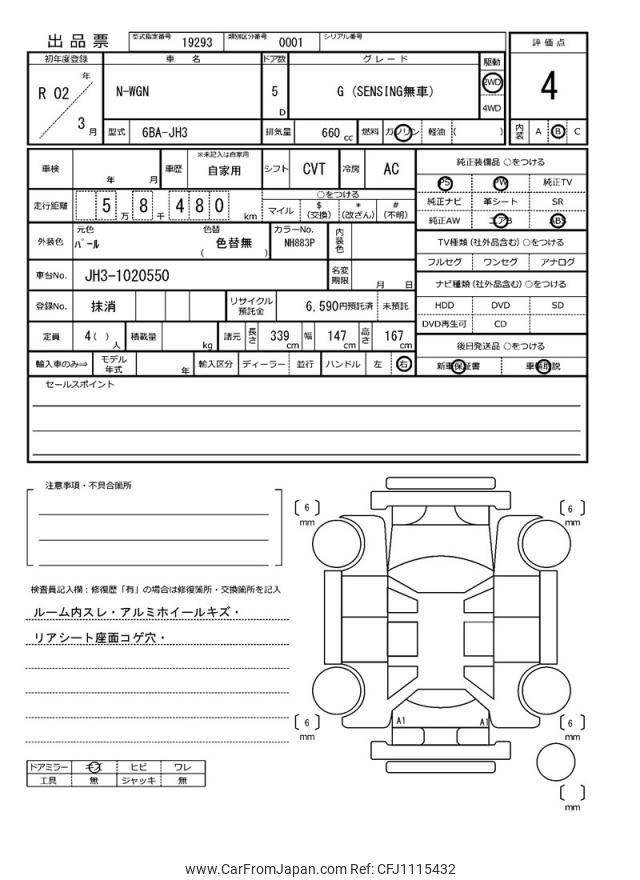 出品票 型式指定番号 19293 類別区分番号 0001 シリアル番号
初年度登録 車 名 ドア数 グレード 駆動 評価点
R 02 年 3 月 N-WGN 5 D G (SENSING無車) 2WD 4WD 4
型式 6BA-JH3 排気量 660 cc 燃料 ガソリン 軽油 ( ) 内装 A B C
車検 年 月 車歴 ※未記入は自家用 自家用 シフト CVT 冷房 AC
走行距離 5 万 8 千 4 8 0 km ○をつける マイル $ (交換) * (改ざん) # (不明)
外装色 元色 パール 色替 ( 色替無 ) カラーNo. NH883P 内装色
車台No. JH3-1020550 名変期限 月 日
登録No. 抹消 リサイクル預託金 6,590円預託済 未預託
定員 4( ) 人 積載量 kg 諸元 長さ 339 cm 幅 147 cm 高さ 167 cm
輸入車のみ⇒ モデル年式 年 輸入区分 ディーラー 並行 ハンドル 左 右
純正装備品 ○をつける
PS PW 純正TV
純正ナビ 革シート SR
純正AW エアB ABS
TV種類 (社外品含む) ○をつける
フルセグ ワンセグ アナログ
ナビ種類 (社外品含む) ○をつける
HDD DVD SD
DVD再生可 CD
後日発送品 ○をつける
新車保証書 車輌取説
セールスポイント
注意事項・不具合箇所
検査員記入欄：修復歴「有」の場合は修復箇所・交換箇所を記入
ルーム内スレ・アルミホイールキズ・
リアシート座面コゲ穴・
ドアミラー キズ ヒビ ワレ
工具 無 ジャッキ 無
[ 6 ] mm [ 6 ] mm
A1 A1
[ 6 ] mm [ 6 ] mm
[ ] mm
www.CarFromJapan.com Ref: CFJ1115432